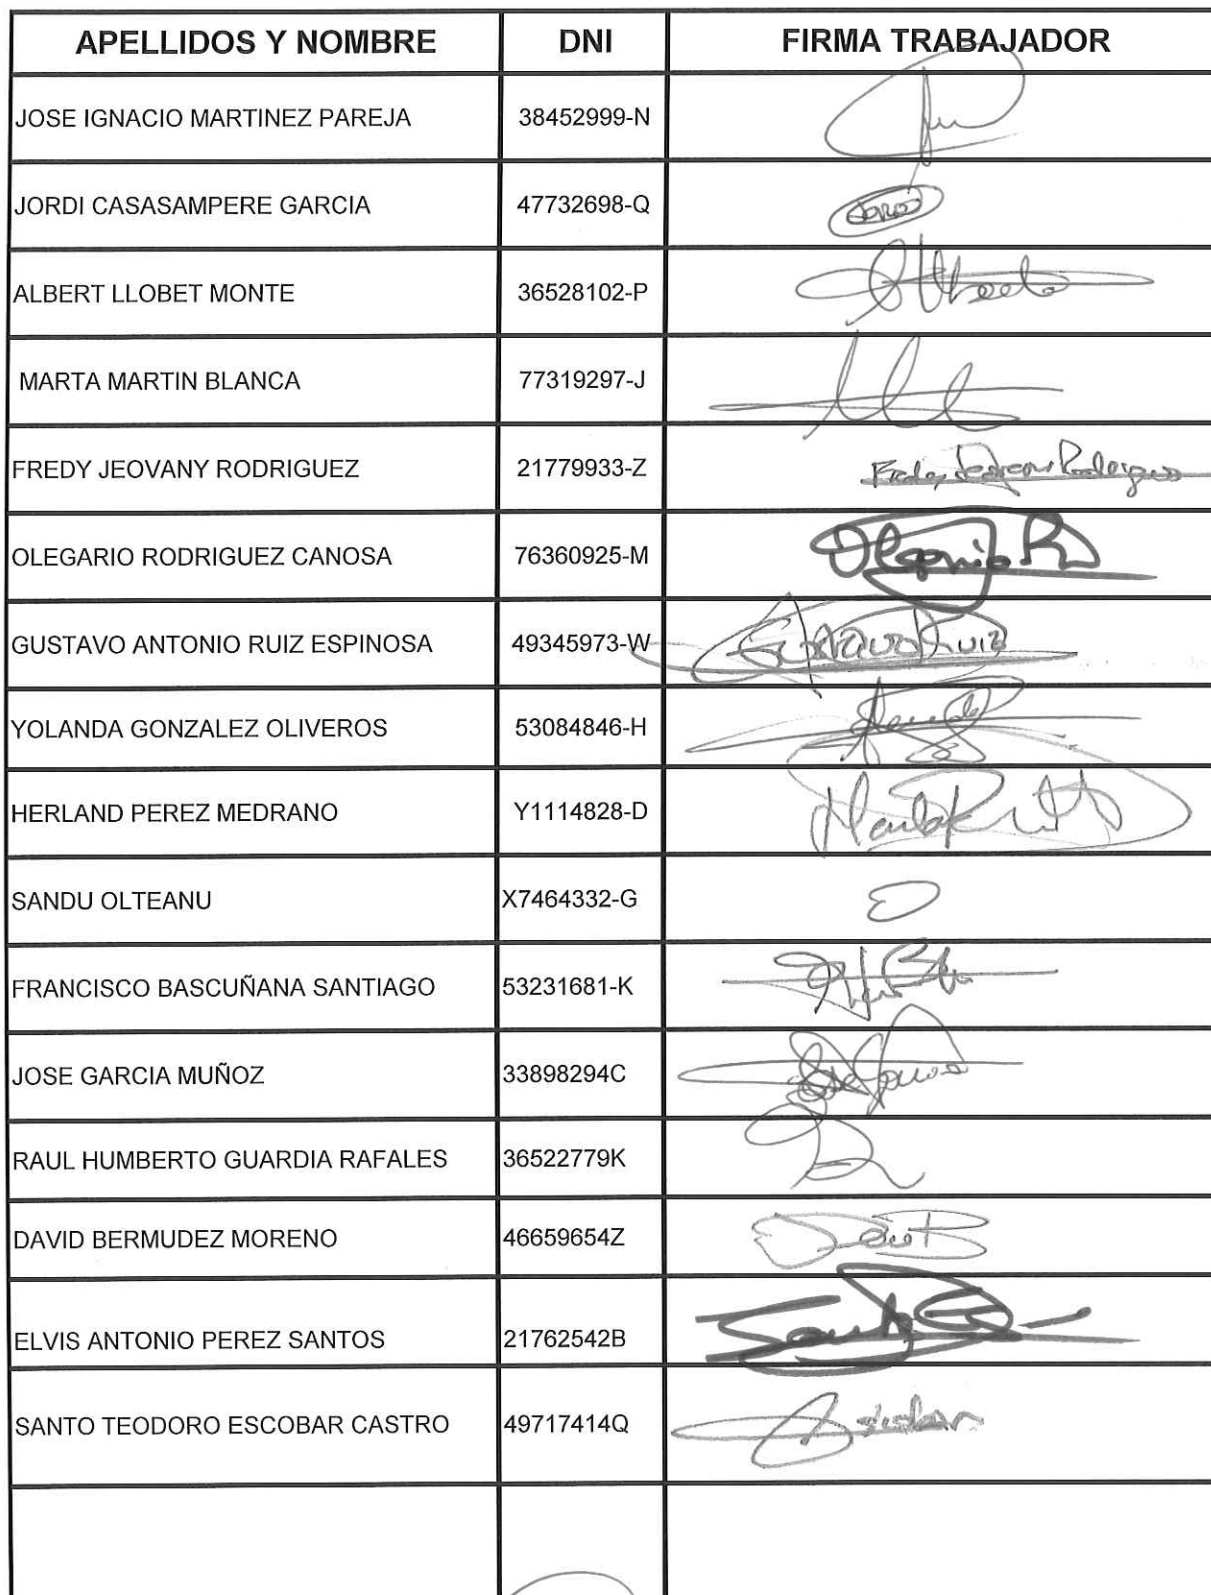 APELLIDOS Y NOMBRE DNI FIRMA TRABAJADOR
JOSE IGNACIO MARTINEZ PAREJA 38452999-N
JORDI CASASAMPERE GARCIA 47732698-Q
ALBERT LLOBET MONTE 36528102-P
MARTA MARTIN BLANCA 77319297-J
FREDY JEOVANY RODRIGUEZ 21779933-Z Fredy Jeovany Rodriguez
OLEGARIO RODRIGUEZ CANOSA 76360925-M Olegario R
GUSTAVO ANTONIO RUIZ ESPINOSA 49345973-W Gustavo Ruiz
YOLANDA GONZALEZ OLIVEROS 53084846-H
HERLAND PEREZ MEDRANO Y1114828-D
SANDU OLTEANU X7464332-G
FRANCISCO BASCUÑANA SANTIAGO 53231681-K
JOSE GARCIA MUÑOZ 33898294C
RAUL HUMBERTO GUARDIA RAFALES 36522779K
DAVID BERMUDEZ MORENO 46659654Z
ELVIS ANTONIO PEREZ SANTOS 21762542B
SANTO TEODORO ESCOBAR CASTRO 49717414Q Escobar